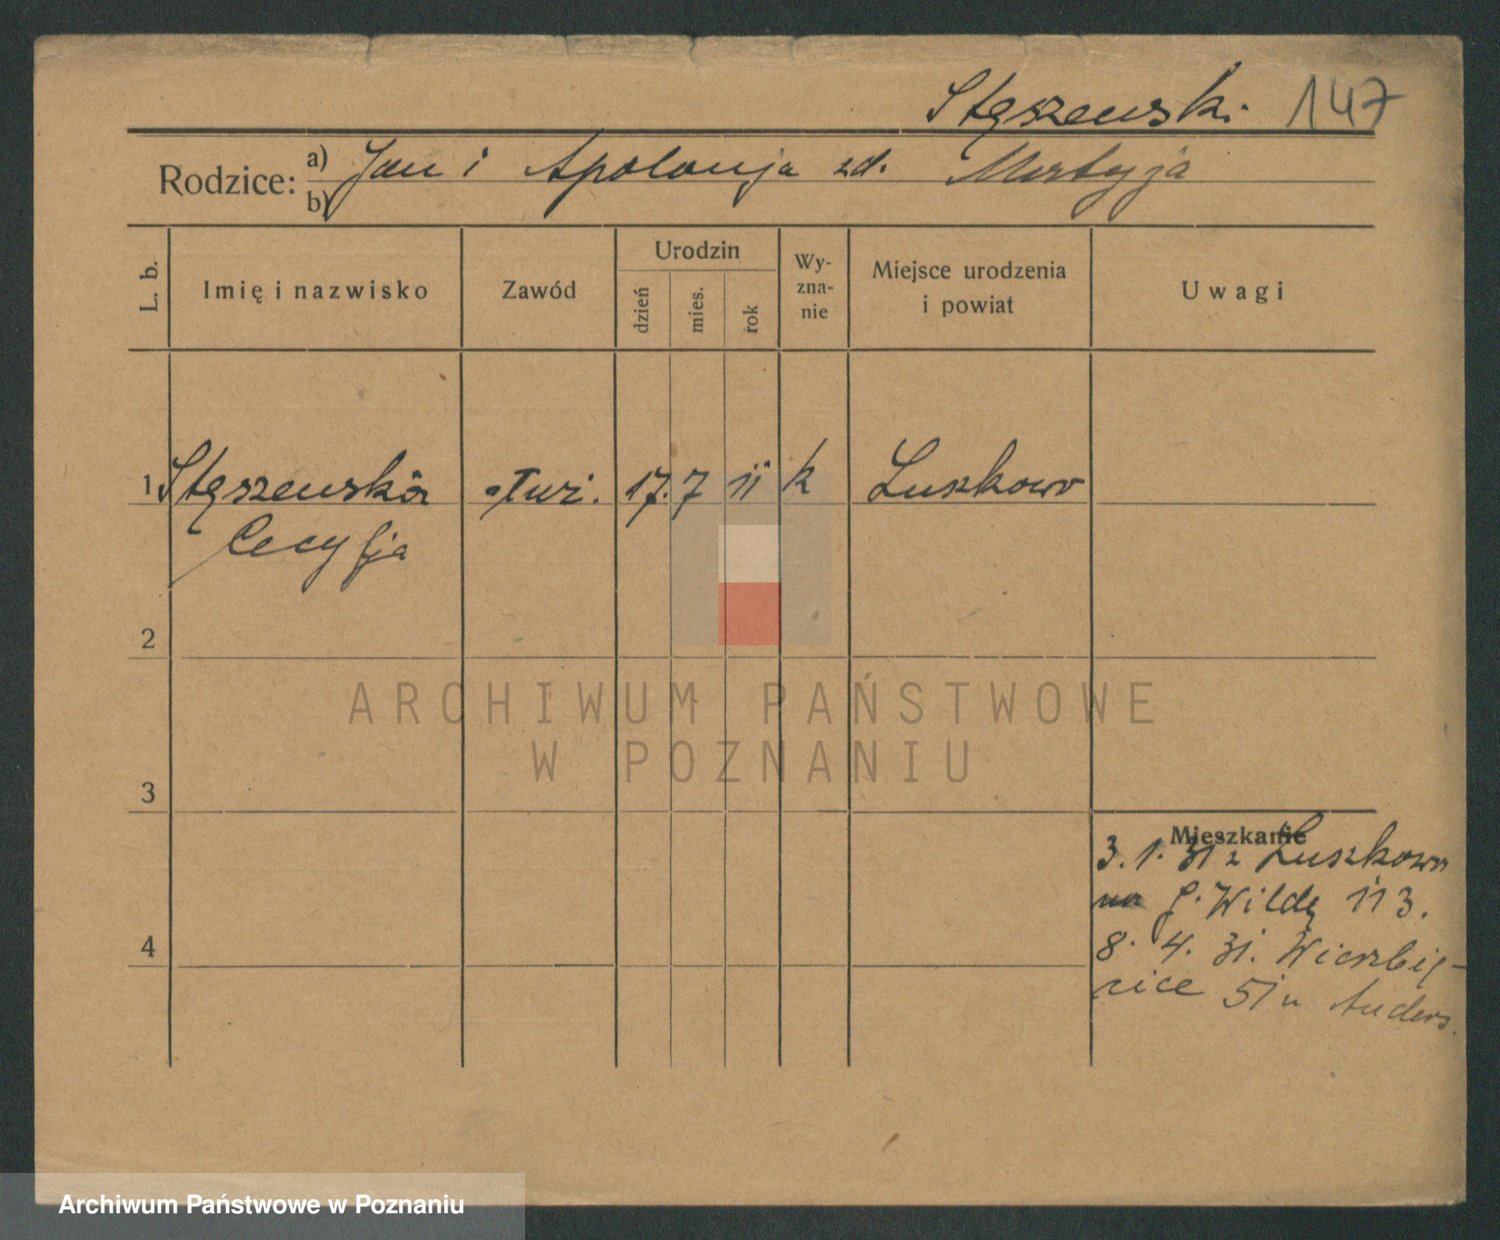 Stęszewski 147
Rodzice: a) Jan i Apolonja zd.
b)
L. b. Imię i nazwisko Zawód Urodzin dzień mies. rok Wy-zna-nie Miejsce urodzenia i powiat Uwagi
1 Stęszewska 17. 7 11 k Luszkowo
Cecylja
2
3
4
Mieszkanie
3. 1. 31 z Luszkowa
na G. Wildę 113.
8. 4. 31. Wierzbię-
cice 51 u Anders.
ARCHIWUM PAŃSTWOWE
W POZNANIU
Archiwum Państwowe w Poznaniu